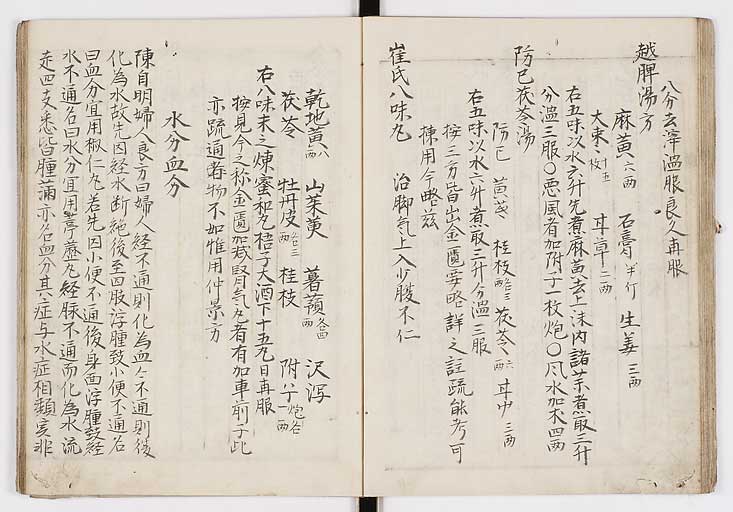 八分去滓温服良久再服
越脾湯方
麻黄六両 石膏半斤 生姜三両
大棗十五枚 甘草二両
右五味以水六升先煮麻黄去上沫内諸薬煮取三升
分温三服〇悪風者加附子一枚炮〇風水加朮四両
防已茯苓湯
防已 黄芪 桂枝各三両 茯苓六両 甘中二両
右五味以水六升煮取三升分温三服
按三方皆出金匱要略詳之註疏能考可
棟用今略茲
崔氏八味丸 治脚気上入少腹不仁
乾地黄八両 山茱萸 薯蕷各四両 沢瀉
茯苓 牡丹皮各三両 桂枝 附子炮各一両
右八味末之煉蜜和丸梧子大酒下十五丸日再服
按見今之称金匱加减腎気丸者有加車前子此
亦疏通着物不如惟用仲景方
水分血分
陳自明婦人良方曰婦人経不通則化為血血不通則後
化為水故先因経水断絶後至四肢浮腫致小便不通名
曰血分宜用椒仁丸若先因小便不通後身面浮腫致経
水不通名曰水分宜用葶藶丸経脉不通而化為水流
走四支悉皆腫満亦名血分其症与水症相類実非